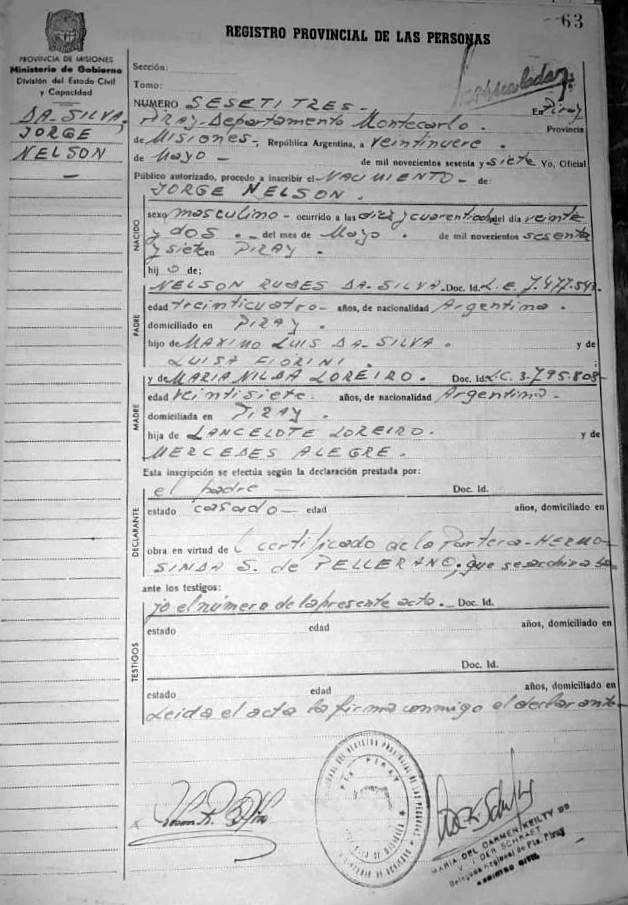 63
REGISTRO PROVINCIAL DE LAS PERSONAS
PROVINCIA DE MISIONES
Ministerio de Gobierno
División del Estado Civil
y Capacidad
DA-SILVA.
JORGE
NELSON
—
Sección:
Tomo:
NUMERO SESETITRES.- En Piray
PIRAY-Departamento Montecarlo. Provincia
de Misiones-, República Argentina, a veintinueve
de Mayo - de mil novecientos sesenta y siete Yo, Oficial
Público autorizado, procedo a inscribir el NACIMIENTO - de:
JORGE NELSON.
NACIDO
sexo masculino - ocurrido a las diez y del día veinte
y dos. - del mes de Mayo. de mil novecientos sesenta
y siete en PIRAY.
hijo de;
PADRE
NELSON DA-SILVA. Doc. Id. L.E. 7.477.543.
edad treinticuatro- años, de nacionalidad Argentina.
domiciliado en PIRAY.
hijo de MAXIMO LUIS DA-SILVA. y de
LUISA FIORINI.
MADRE
y de MARIA NILDA LOREIRO. Doc. Id. L.C. 3.795.808-
edad veintisiete. años, de nacionalidad Argentina.
domiciliada en PIRAY.
hija de LANCELOTE LOREIRO. y de
MERCEDES ALEGRE.
Esta inscripción se efectúa según la declaración prestada por:
DECLARANTE
el padre - Doc. Id.
estado casado - edad años, domiciliado en
obra en virtud de certificado de la Partera - HERMO-
SINDA S. de PELLERANO, que se archiva ba-
ante los testigos:
TESTIGOS
jo el número de la presente acta. - Doc. Id.
estado edad años, domiciliado en
Doc. Id.
estado edad años, domiciliado en
Leida el acta la firma conmigo el declarante-
MARIA DEL CARMEN KEILTY DE
V. DER SCHRAFT
Delegada Regional de Pto. Piray
REGISTRO CIVIL